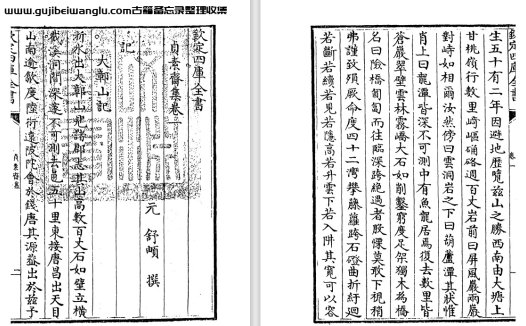 www.gujibeiwanglu.com古籍备忘录整理收集
欽定四庫全書
貞素齋集卷一
元 舒頔 撰
記
大鄣山記
浙水出大鄣山見諸郡志其山高數百丈石如壁立横
截溪澗間深邃不可測去邑五十里東接唐昌出天目
山南逾歙度陸術遠陂陀會於錢唐其源蓋出於兹予
欽定四庫全書
生五十有二年因避地歷覽兹山之勝西南由大塘上
甘桃嶺行數里崎嶇硗确過百丈岩前曰屏風巖兩巖
對峙如相爾汝然傍曰雲洞岩之下曰葫蘆潭其狀惟
肖上曰龍潭皆深不可測中有魚龍居焉復去數里皆
蒼巖翠壁雲林霧嶠大石如削鑿窮度足架獨木為橋
名曰險橋匍匐而往臨深跨絶過者股慄莫敢下視稍
弗謹致殞厥命度四十二灣攀藤蘿跨石磴曲折紆迴
若斷若續若見若隱高若升雲下若入阱其寬可以容